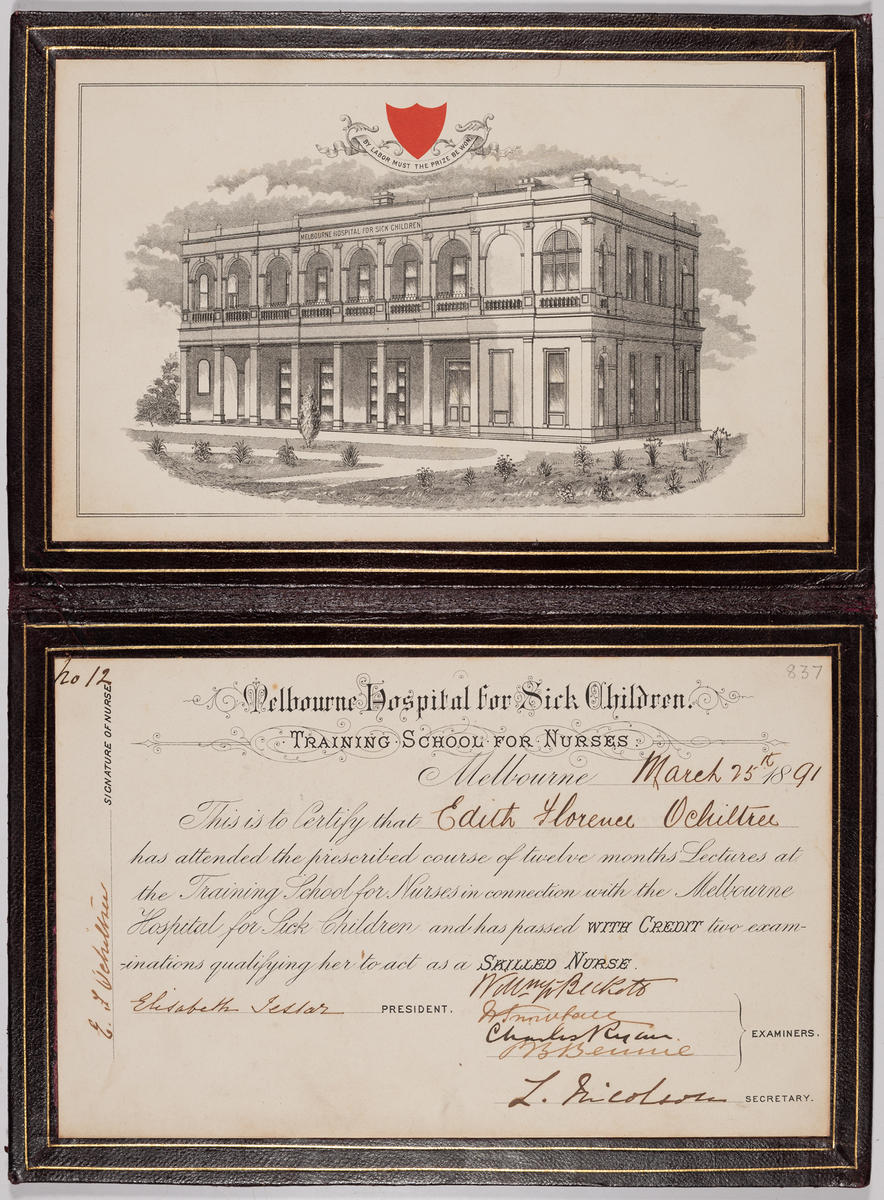 BY LABOR MUST THE PRIZE BE WON
MELBOURNE HOSPITAL FOR SICK CHILDREN
No 12
837
SIGNATURE OF NURSE
E. F Ochiltree
Melbourne Hospital for Sick Children.
TRAINING SCHOOL FOR NURSES.
Melbourne March 25th 1891
This is to Certify that Edith Florence Ochiltree
has attended the prescribed course of twelve months Lectures at
the Training School for Nurses in connection with the Melbourne
Hospital for Sick Children and has passed WITH CREDIT two exam-
-inations qualifying her to act as a SKILLED NURSE.
Elisabeth Testar PRESIDENT.
Snowball
Charles Ryan.
EXAMINERS.
L. Nicolson SECRETARY.